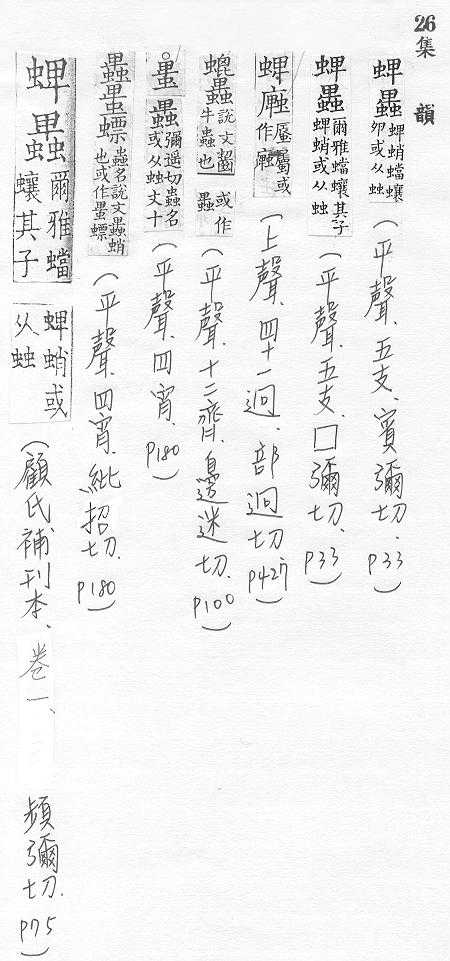 26集韻
蜱蟲 蜱蛸蟷蠰卵或从䖵 (平聲、五支、賓彌切、P33)
蜱 爾雅蟷蠰其子蜱蛸或从䖵 (平聲、五支、□彌切、P33)
蜱 或作 (上聲、四十一迥、部迥切、P427)
說文齧牛蟲也 或作 (平聲、十二齊、邊迷切、P100)
彌遥切蟲名或从䖵文十 (平聲、四宵、P180)
蟲名說文蟲蛸也或作 (平聲、四宵、紕招切、P180)
蜱 爾雅蟷蠰其子 蜱蛸或从䖵 (顧氏補刊本、卷一、頻彌切、P75)